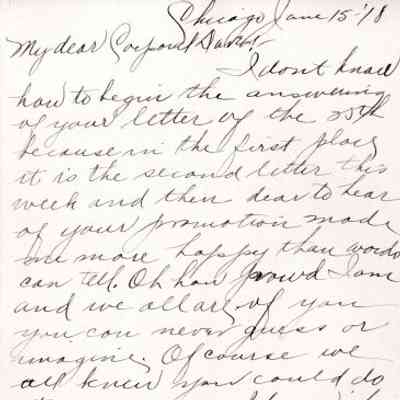 Chicago June 15 '18
My dear Corporal
I don't know
how to begin the answering
of your letter of the 25th
because in the first place
it is the second letter this
week and then dear to hear
of your promotion made
me more happy than words
can tell. Oh how prowd I am
and we all are of you
you can never guess or
imagine. Of course we
all knew you could do